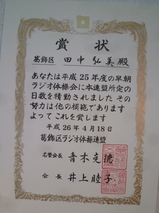 賞状
葛飾区 田中弘美殿
あなたは平成25年度の早朝
ラジオ体操会に本連盟所定の
日数を精勤されました その
努力は他の模範であります
よってこれを賞します
平成26年4月18日
葛飾区ラジオ体操連盟
名誉会長 青木克德
会長 井上睦子